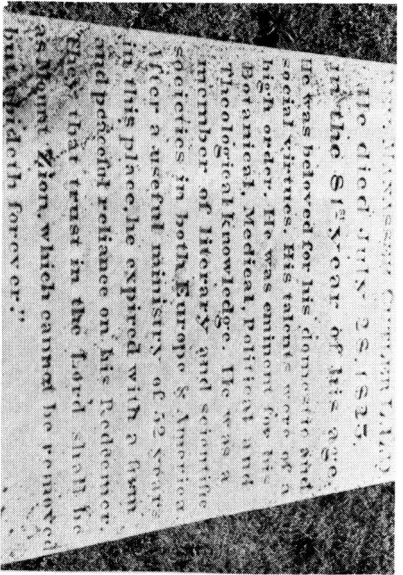 MANASSEH CUTLER LL.D.
He died July 28 1823
in the 81st year of his age.
He was beloved for his domestic and
social virtues. His talents were of a
high order. He was eminent for his
Botanical, Medical, Political and
Theological Knowledge. He was a
member of literary and scientific
societies in both Europe & America
After a useful ministry of 52 years
in this place, he expired with a firm
and peaceful reliance on his Redeemer.
"They that trust in the Lord shall be
as Mount Zion, which cannot be removed
but abideth forever."